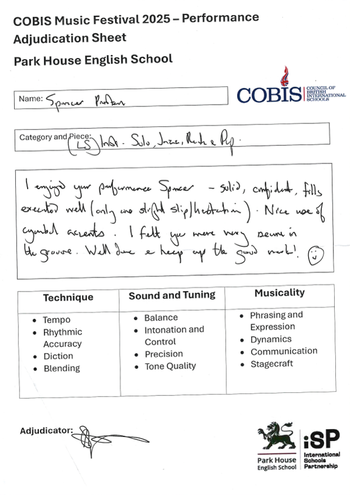 COBIS Music Festival 2025 – Performance
Adjudication Sheet
Park House English School
COBIS COUNCIL OF BRITISH INTERNATIONAL SCHOOLS
Name: Spencer
Category and Piece: (LS) Inst. Solo, Jazz, Rock & Pop.
I enjoyed your performance Spencer – solid, confident, fills
executed well (only one slight slip/hesitation). Nice use of
cymbal accents. I felt you were very secure in
the groove. Well done & keep up the good work! ☺
Technique
• Tempo
• Rhythmic Accuracy
• Diction
• Blending
Sound and Tuning
• Balance
• Intonation and Control
• Precision
• Tone Quality
Musicality
• Phrasing and Expression
• Dynamics
• Communication
• Stagecraft
Adjudicator:
Park House
English School
iSP
International
Schools
Partnership